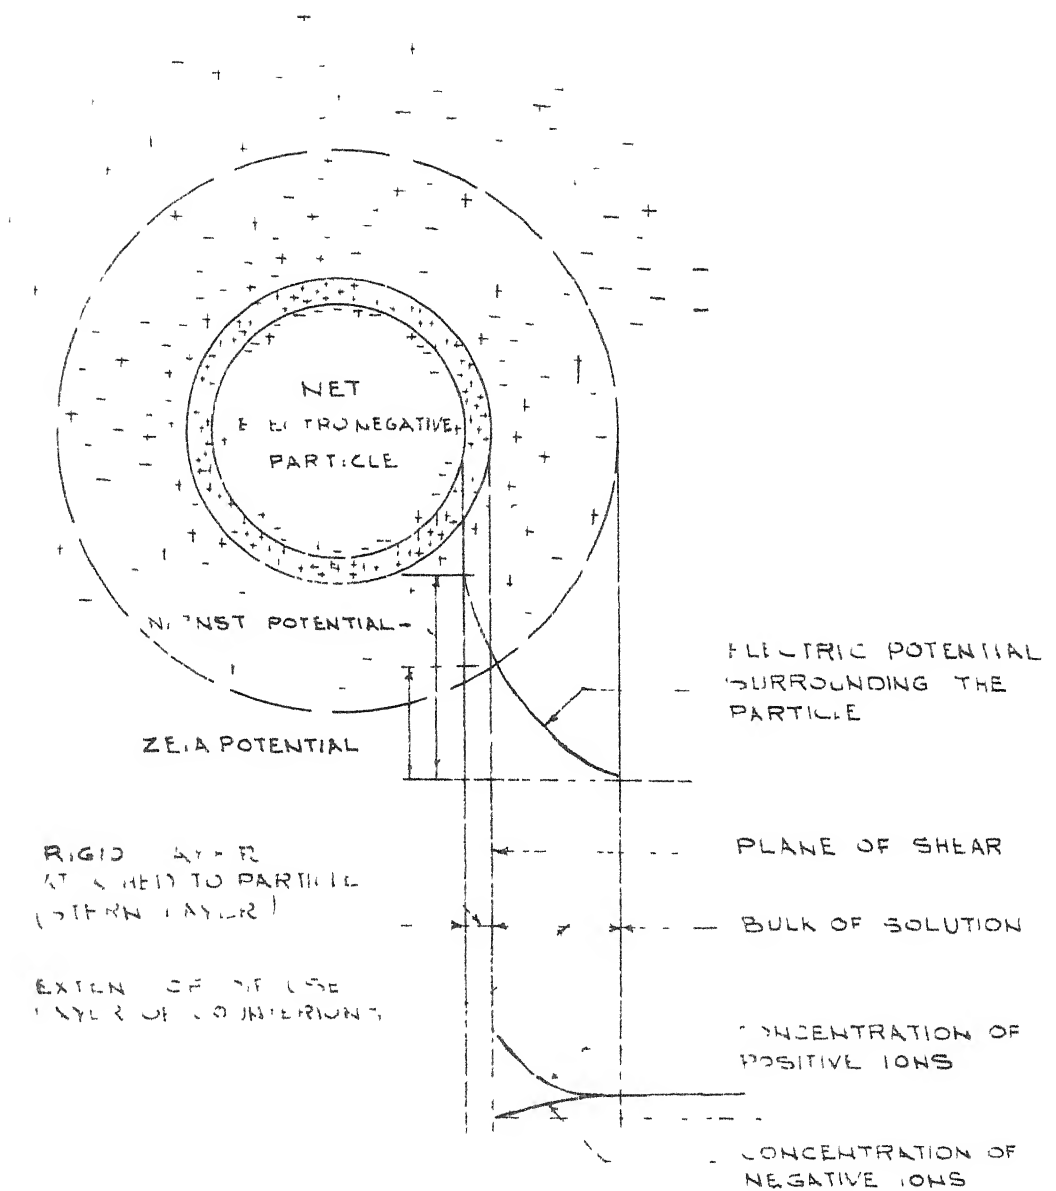 NET
ELECTRONEGATIVE
PARTICLE
NERNST POTENTIAL
ELECTRIC POTENTIAL
SURROUNDING THE
PARTICLE
ZETA POTENTIAL
PLANE OF SHEAR
RIGID LAYER
ATTACHED TO PARTICLE
(STERN LAYER)
BULK OF SOLUTION
EXTENT OF DIFFUSE
LAYER OF COUNTERIONS
CONCENTRATION OF
POSITIVE IONS
CONCENTRATION OF
NEGATIVE IONS